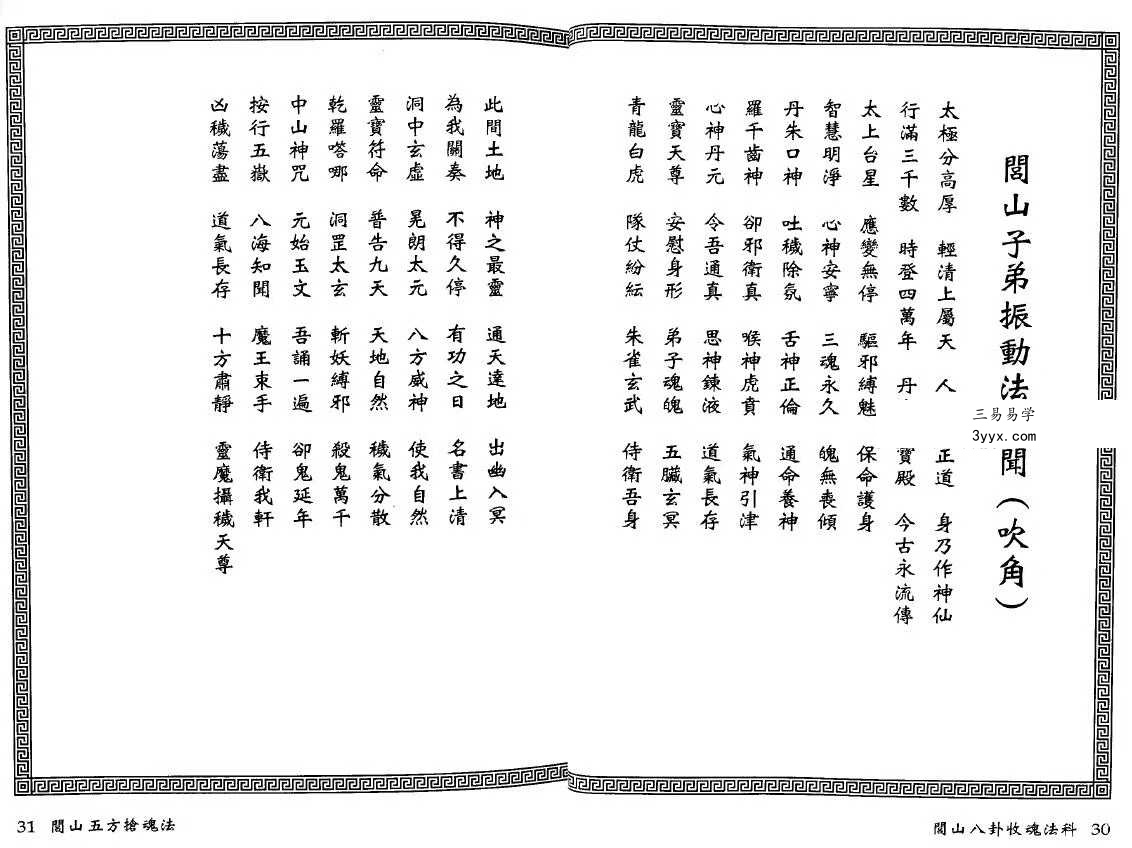 閭山子弟振動法
聞(吹角)
太極分高厚 輕清上屬天 人
正道 身乃作神仙
行滿三千數 時登四萬年 丹
寶殿 今古永流傳
太上台星 應變無停 驅邪縛魅 保命護身
智慧明淨 心神安寧 三魂永久 魄無喪傾
丹朱口神 吐穢除氛 舌神正倫 通命養神
羅千齒神 卻邪衛真 喉神虎賁 氣神引津
心神丹元 令吾通真 思神鍊液 道氣長存
靈寶天尊 安慰身形 弟子魂魄 五臟玄冥
青龍白虎 隊仗紛紜 朱雀玄武 侍衛吾身
三易易学
3yyx.com
閭山八卦收魂法科 30
此間土地 神之最靈 通天達地 出幽入冥
為我關奏 不得久停 有功之日 名書上清
洞中玄虛 晃朗太元 八方威神 使我自然
靈寶符命 普告九天 天地自然 穢氣分散
乾羅嗒哪 洞罡太玄 斬妖縛邪 殺鬼萬千
中山神咒 元始玉文 吾誦一遍 卻鬼延年
按行五嶽 八海知聞 魔王束手 侍衛我軒
凶穢蕩盡 道氣長存 十方肅靜 靈魔攝穢天尊
31 閭山五方搶魂法